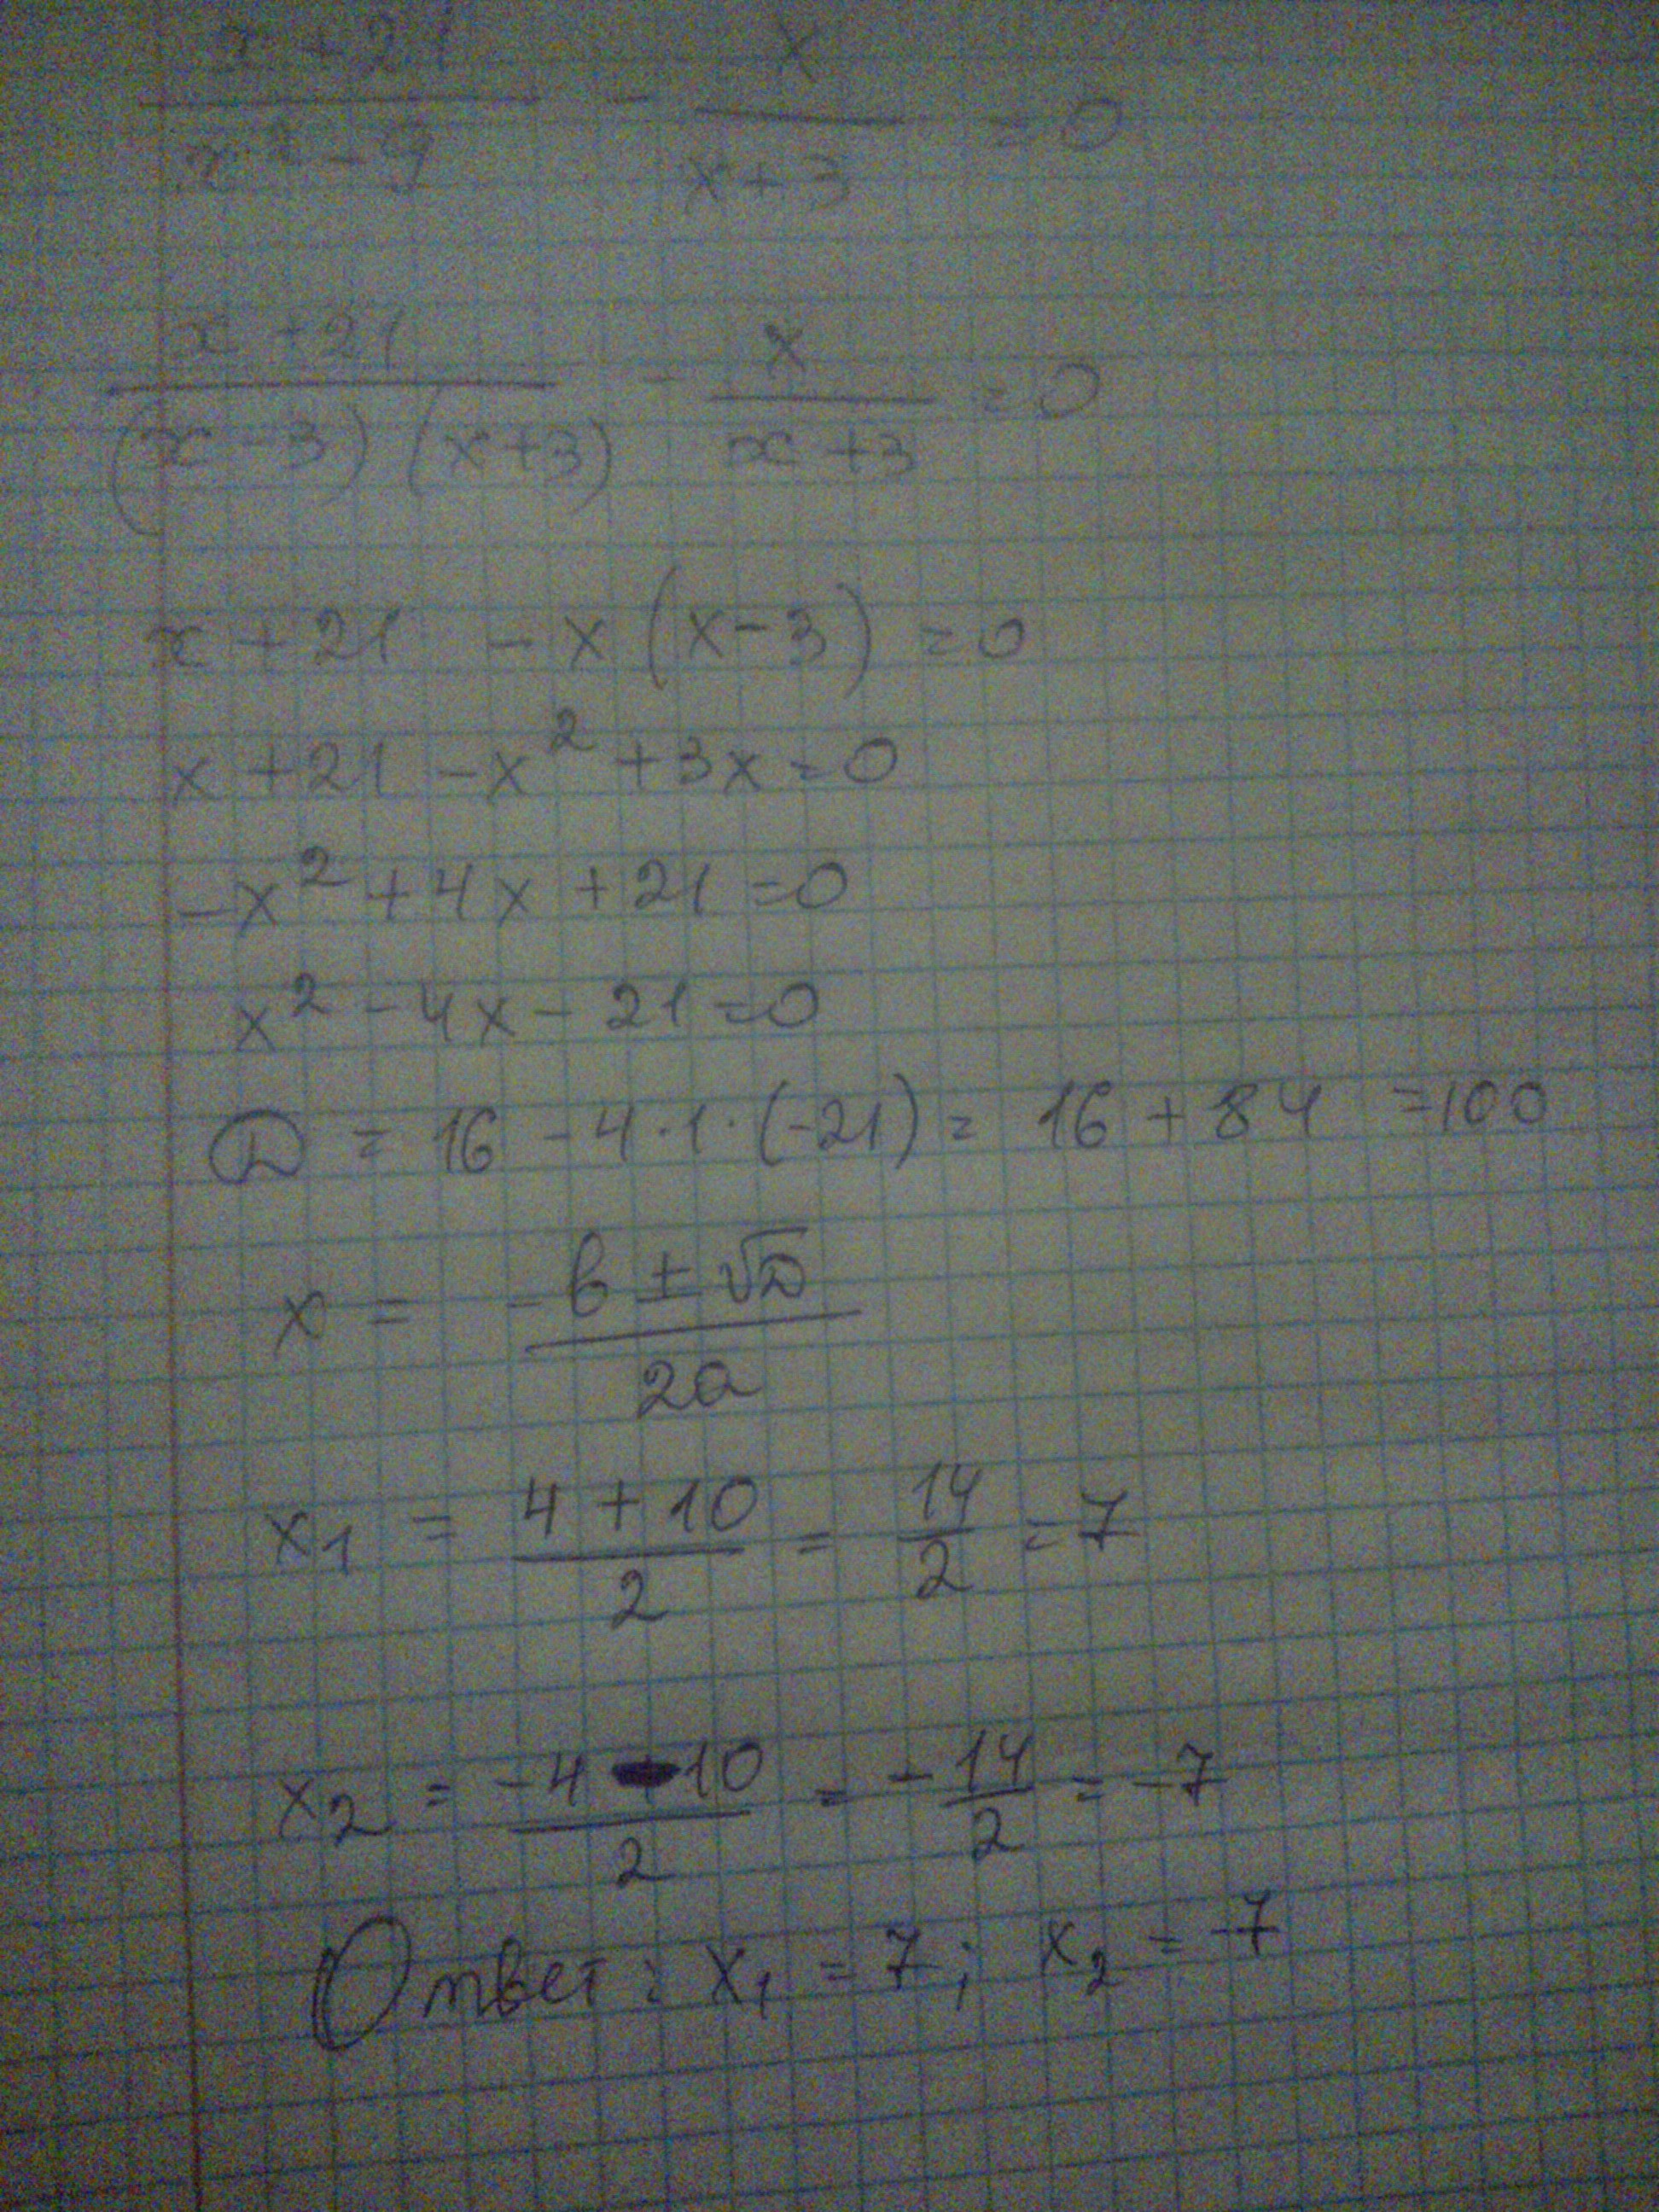 (x+21)/(x²-9) - x/(x+3) = 0
(x+21)/((x-3)(x+3)) - x/(x+3) = 0
x+21 - x(x-3) = 0
x+21-x²+3x=0
-x²+4x+21=0
x²-4x-21=0
D = 16-4·1·(-21) = 16+84 = 100
x = (-b±√D)/(2a)
x₁ = (4+10)/2 = 14/2 = 7
x₂ = (-4-10)/2 = -14/2 = -7
Ответ: x₁ = 7; x₂ = -7